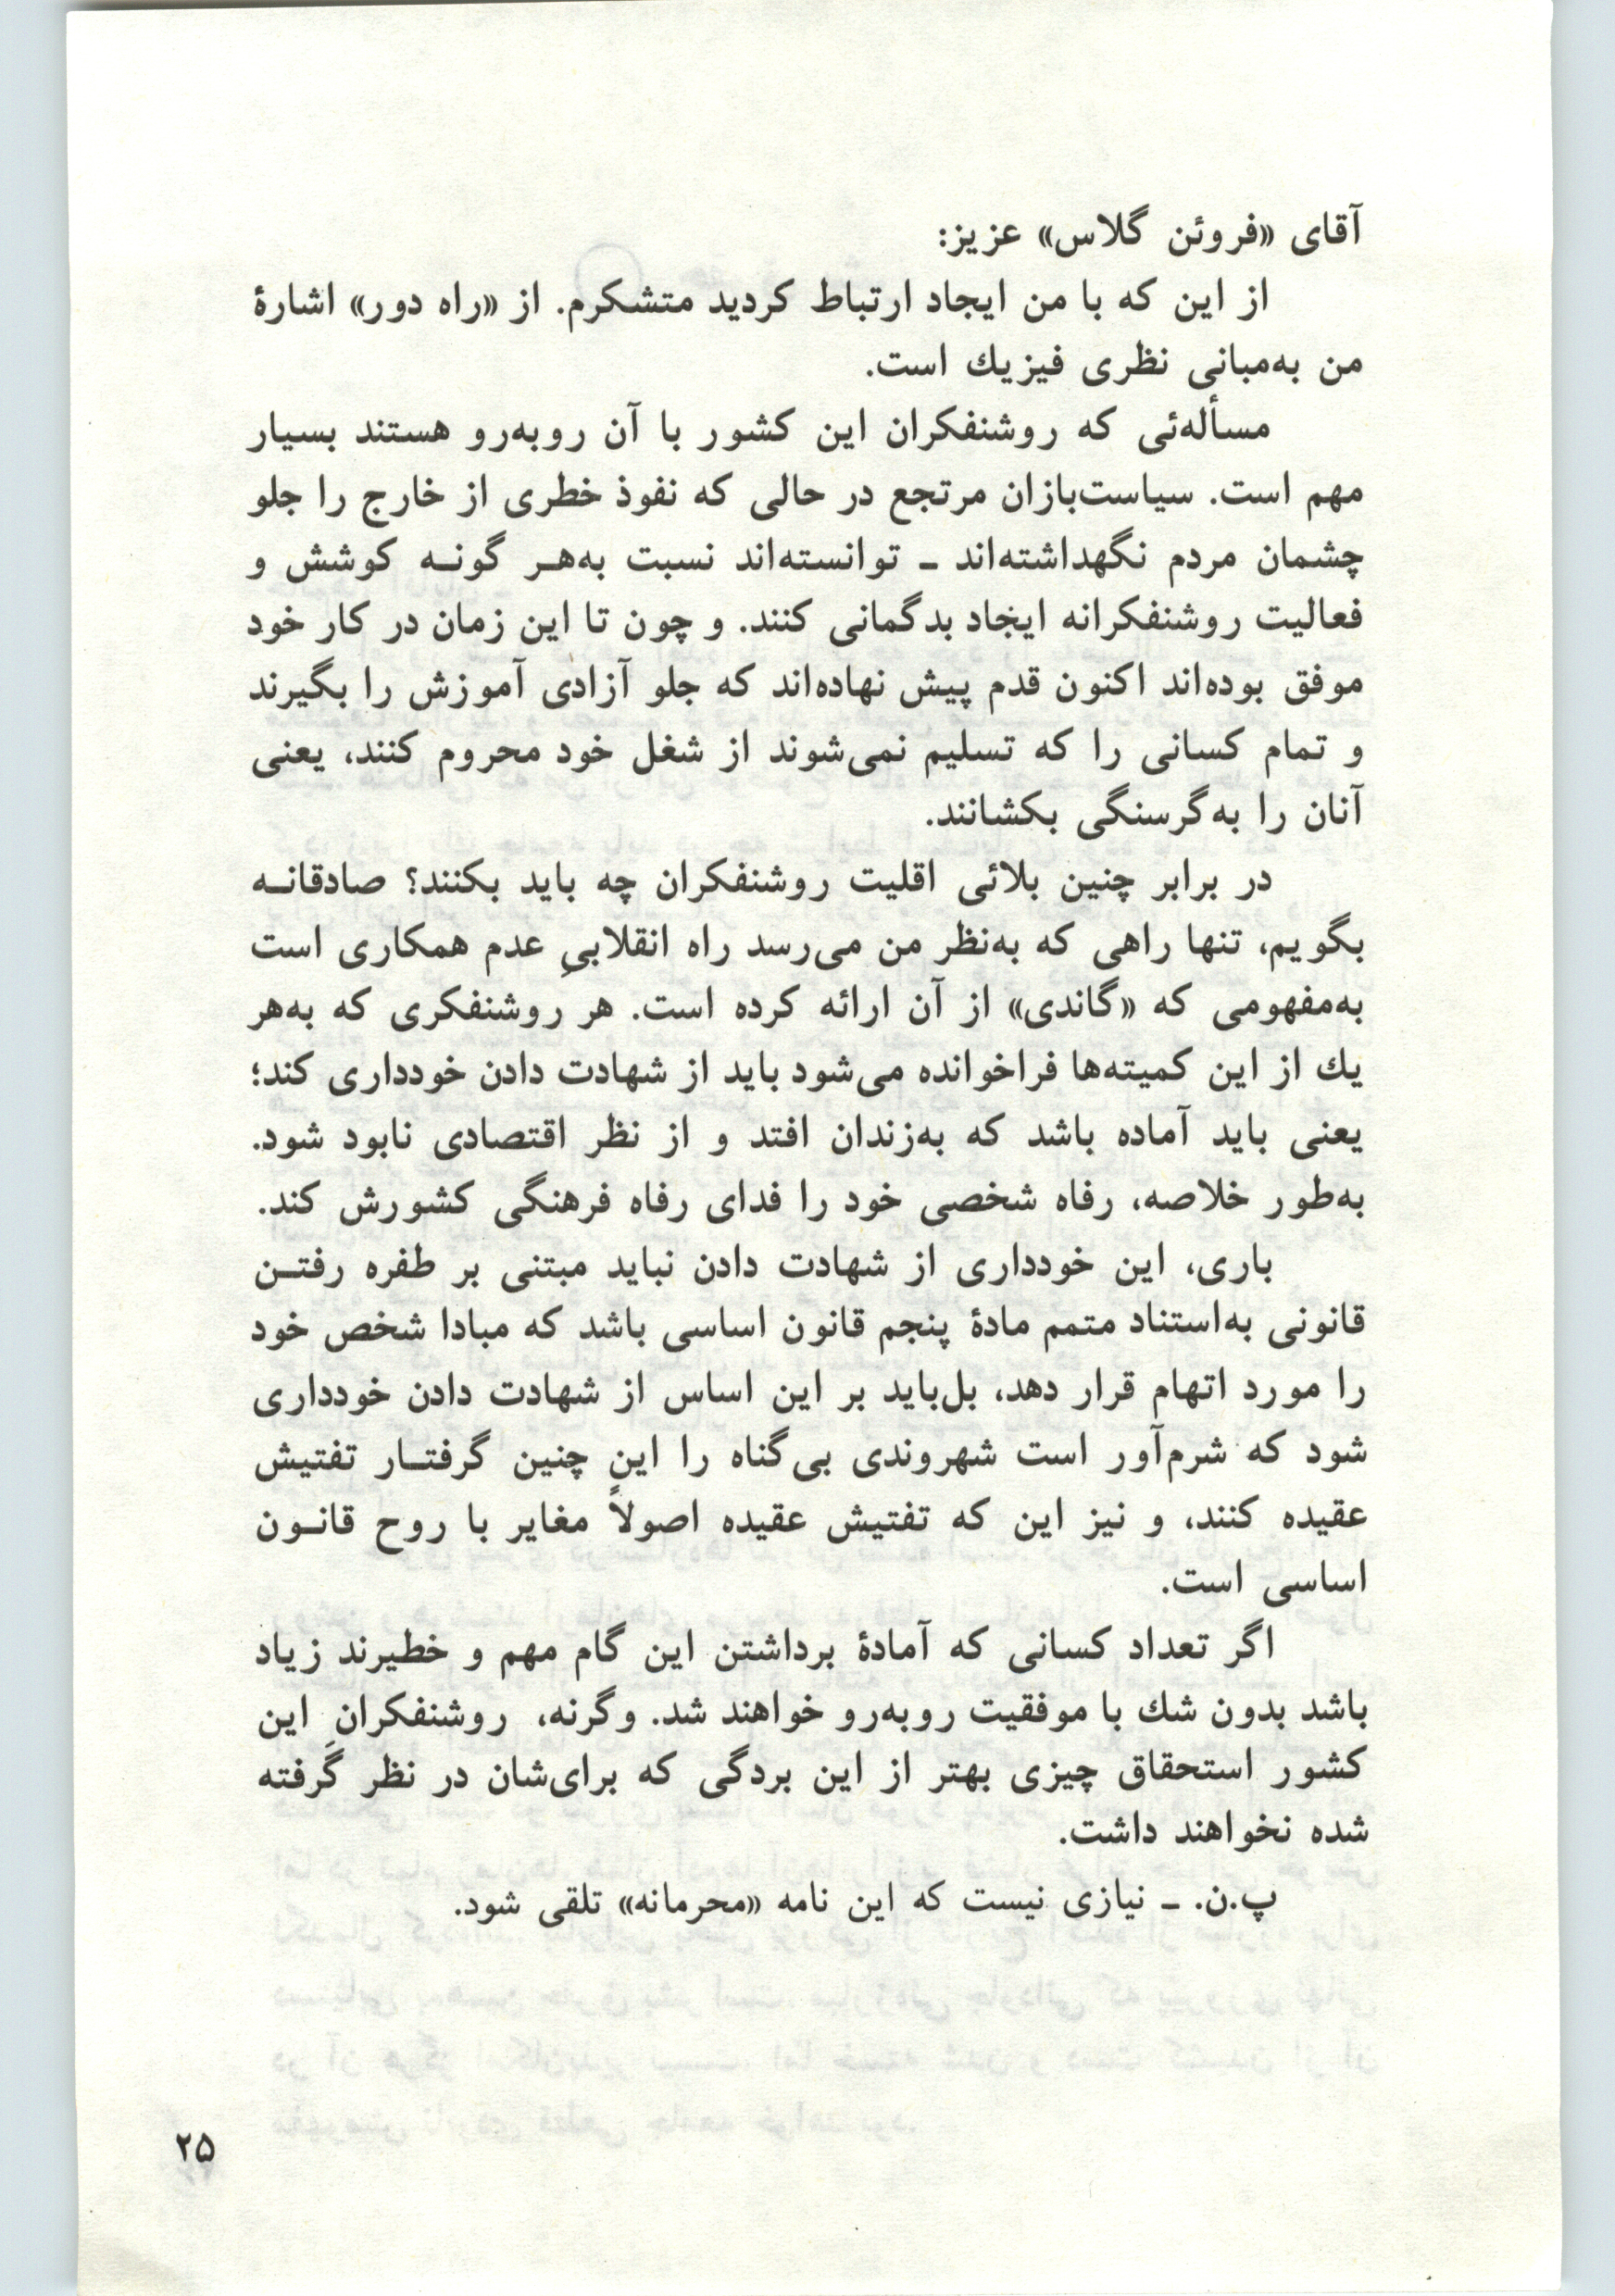 آقای «فروئن گلاس» عزیز:
از این که با من ایجاد ارتباط کردید متشکرم. از «راه دور» اشارهٔ
من به‌مبانی نظری فیزیك است.
مسأله‌ئی که روشنفکران این کشور با آن روبه‌رو هستند بسیار
مهم است. سیاست‌بازان مرتجع در حالی که نفوذ خطری از خارج را جلو
چشمان مردم نگهداشته‌اند ـ توانسته‌اند نسبت به‌هـر گونـه کوشش و
فعالیت روشنفکرانه ایجاد بدگمانی کنند. و چون تا این زمان در کار خود
موفق بوده‌اند اکنون قدم پیش نهاده‌اند که جلو آزادی آموزش را بگیرند
و تمام کسانی را که تسلیم نمی‌شوند از شغل خود محروم کنند، یعنی
آنان را به‌گرسنگی بکشانند.
در برابر چنین بلائی اقلیت روشنفکران چه باید بکنند؟ صادقانـه
بگویم، تنها راهی که به‌نظر من می‌رسد راه انقلابیِ عدم همکاری است
به‌مفهومی که «گاندی» از آن ارائه کرده است. هر روشنفکری که به‌هر
یك از این کمیته‌ها فراخوانده می‌شود باید از شهادت دادن خودداری کند؛
یعنی باید آماده باشد که به‌زندان افتد و از نظر اقتصادی نابود شود.
به‌طور خلاصه، رفاه شخصی خود را فدای رفاه فرهنگی کشورش کند.
باری، این خودداری از شهادت دادن نباید مبتنی بر طفره رفتـن
قانونی به‌استناد متمم مادهٔ پنجم قانون اساسی باشد که مبادا شخص خود
را مورد اتهام قرار دهد، بل‌باید بر این اساس از شهادت دادن خودداری
شود که شرم‌آور است شهروندی بی‌گناه را این چنین گرفتـار تفتیش
عقیده کنند، و نیز این که تفتیش عقیده اصولاً مغایر با روح قانـون
اساسی است.
اگر تعداد کسانی که آمادهٔ برداشتن این گام مهم و خطیرند زیاد
باشد بدون شك با موفقیت روبه‌رو خواهند شد. وگرنه، روشنفکرانِ این
کشور استحقاق چیزی بهتر از این بردگی که برای‌شان در نظر گرفته
شده نخواهند داشت.
پ.ن. ـ نیازی نیست که این نامه «محرمانه» تلقی شود.
۲۵